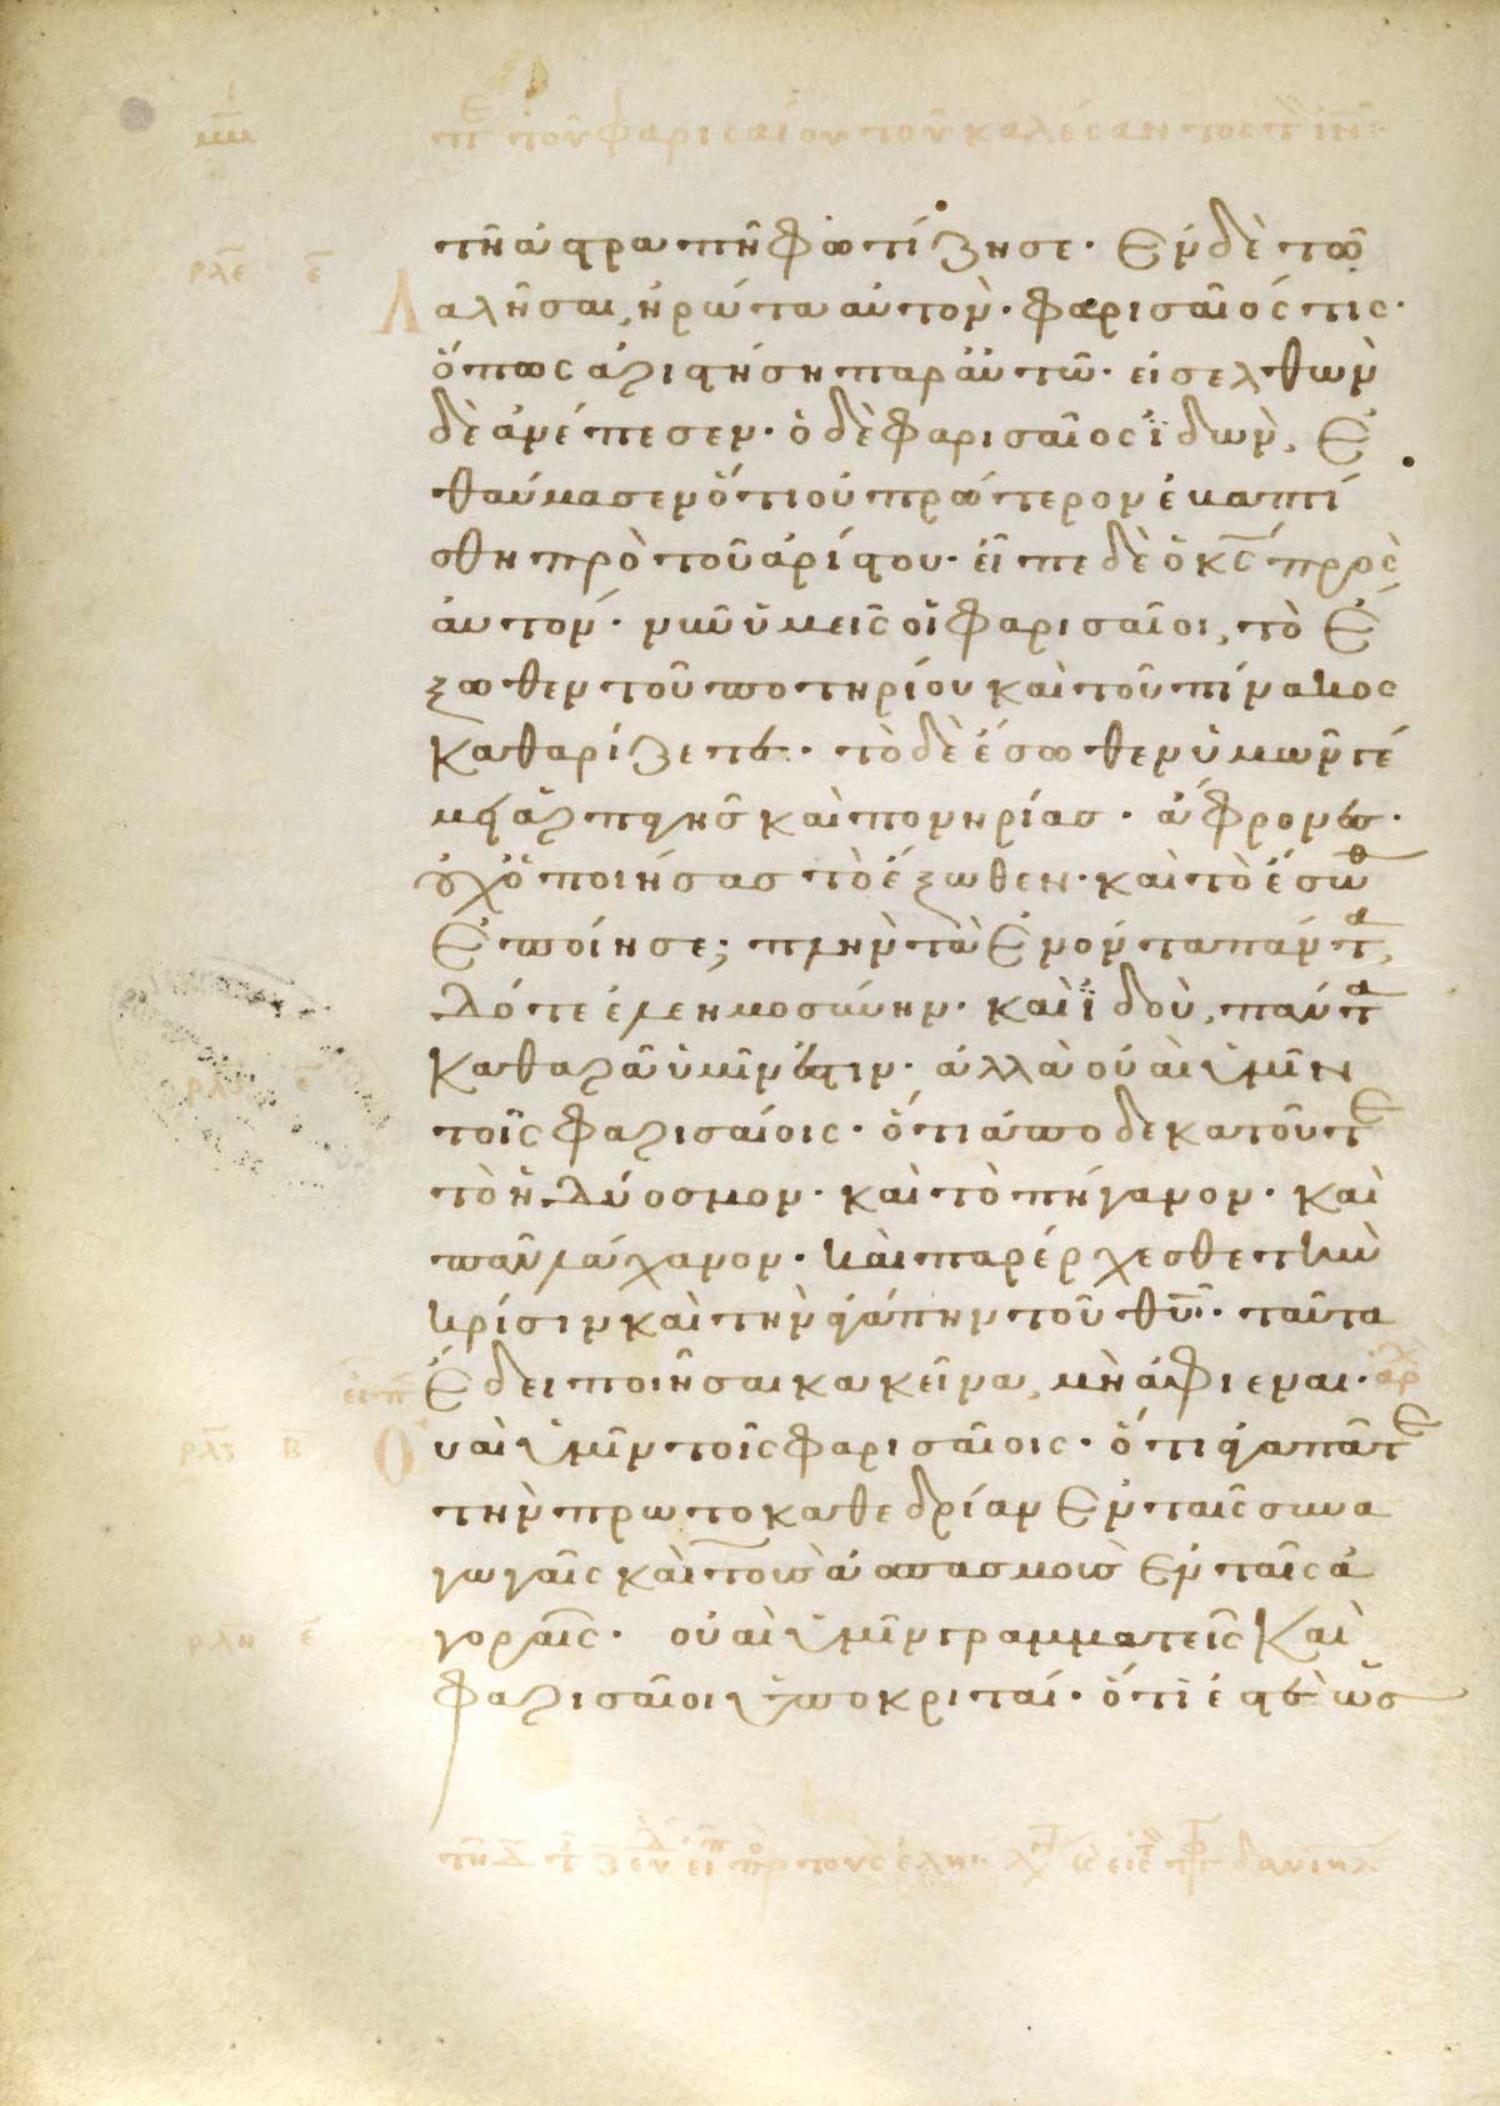 Ἐπὶ τοῦ φαρισαίου τοῦ καλέσαντος τ ιν
τῆ ἀστραπῆ φωτίζη σε· Ἐν δὲ τῶ
ρλε ε
Λαλῆσαι, ἠρώτα αὐτὸν· φαρισαῖός τις·
ὅπως ἀριστήση παρ' αὐτῶ· εἰσελθὼν
δὲ ἀνέπεσεν· ὁ δὲ φαρισαῖος ϊδὼν, ἐ
θαύμασεν ὅτι οὐ πρώτερον ἐβαπτί
σθη πρὸ τοῦ ἀρίστου· εἶπε δὲ ὁ κς πρὸς
αὐτόν· νῦν ὑμεῖς οἱ φαρισαῖοι, τὸ ἔ
ξωθεν τοῦ ποτηρίου καὶ τοῦ πίνακος
καθαρίζετε· τὸ δὲ ἔσωθεν ὑμῶν γέ
μει ἁρπαγῆς καὶ πονηρίας· ἄφρονες·
οὐχ ὁ ποιήσας τὸ ἔξωθεν· καὶ τὸ ἔσωθ
ἐποίησε; πλὴν τὰ ἐνόντα πάντα,
δότε ἐλεημοσύνην· καὶ ϊδοὺ, πάντα
καθαρὰ ὑμῖν ἐστιν· ἀλλὰ οὐαὶ ὑμῖν
τοῖς φαρισαίοις· ὅτι ἀποδεκατοῦτε
τὸ ἡδύοσμον· καὶ τὸ πήγανον· καὶ
πᾶν λάχανον· καὶ παρέρχεσθε τὴν
κρίσιν καὶ τὴν ἀγάπην τοῦ θυ· ταῦτα
ἔδει ποιῆσαι κακεῖνα, μὴ ἀφιεναι· ἀρχ
ρλζ β
Οὐαὶ ὑμῖν τοῖς φαρισαῖοις· ὅτι ἀγαπᾶτε
τὴν πρωτοκαθεδρίαν ἐν ταῖς συνα
γωγαῖς καὶ τοὺς ἀσπασμοὺς ἐν ταῖς ἀ
ρλη ε
γοραῖς· οὐαὶ ὑμῖν γραμματεῖς καὶ
φαρισαῖοι ὑποκριταί· ὅτι ἐστὲ ὡς